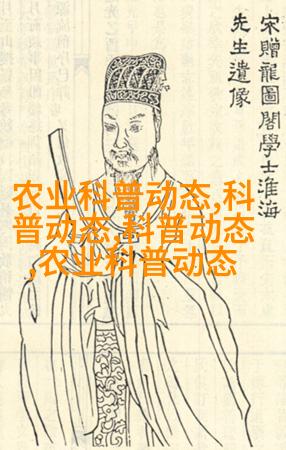 宋贈龍圖閣學士淮海
先生遺像
农业科普动态,科
普动态,科普动态
,农业科普动态